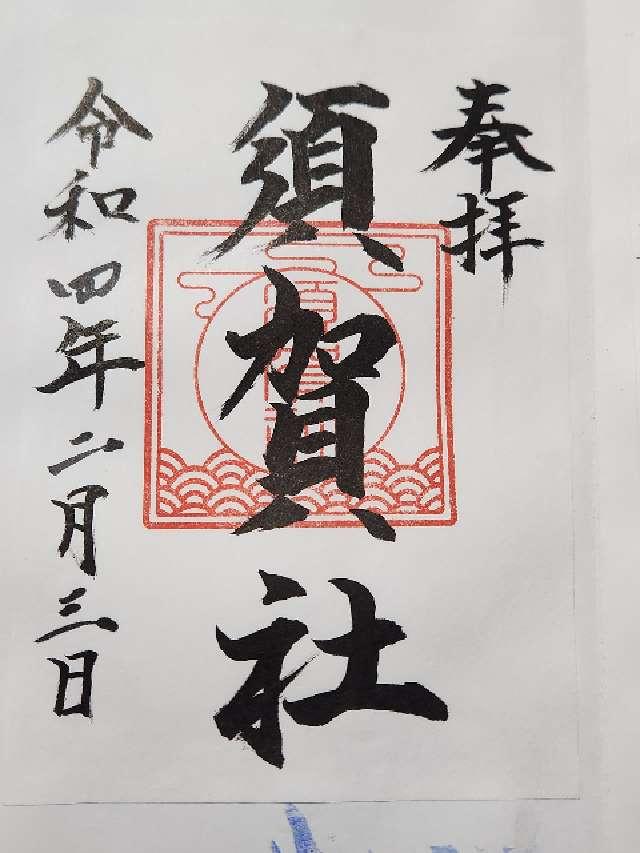 奉拝
須賀社
令和四年二月三日